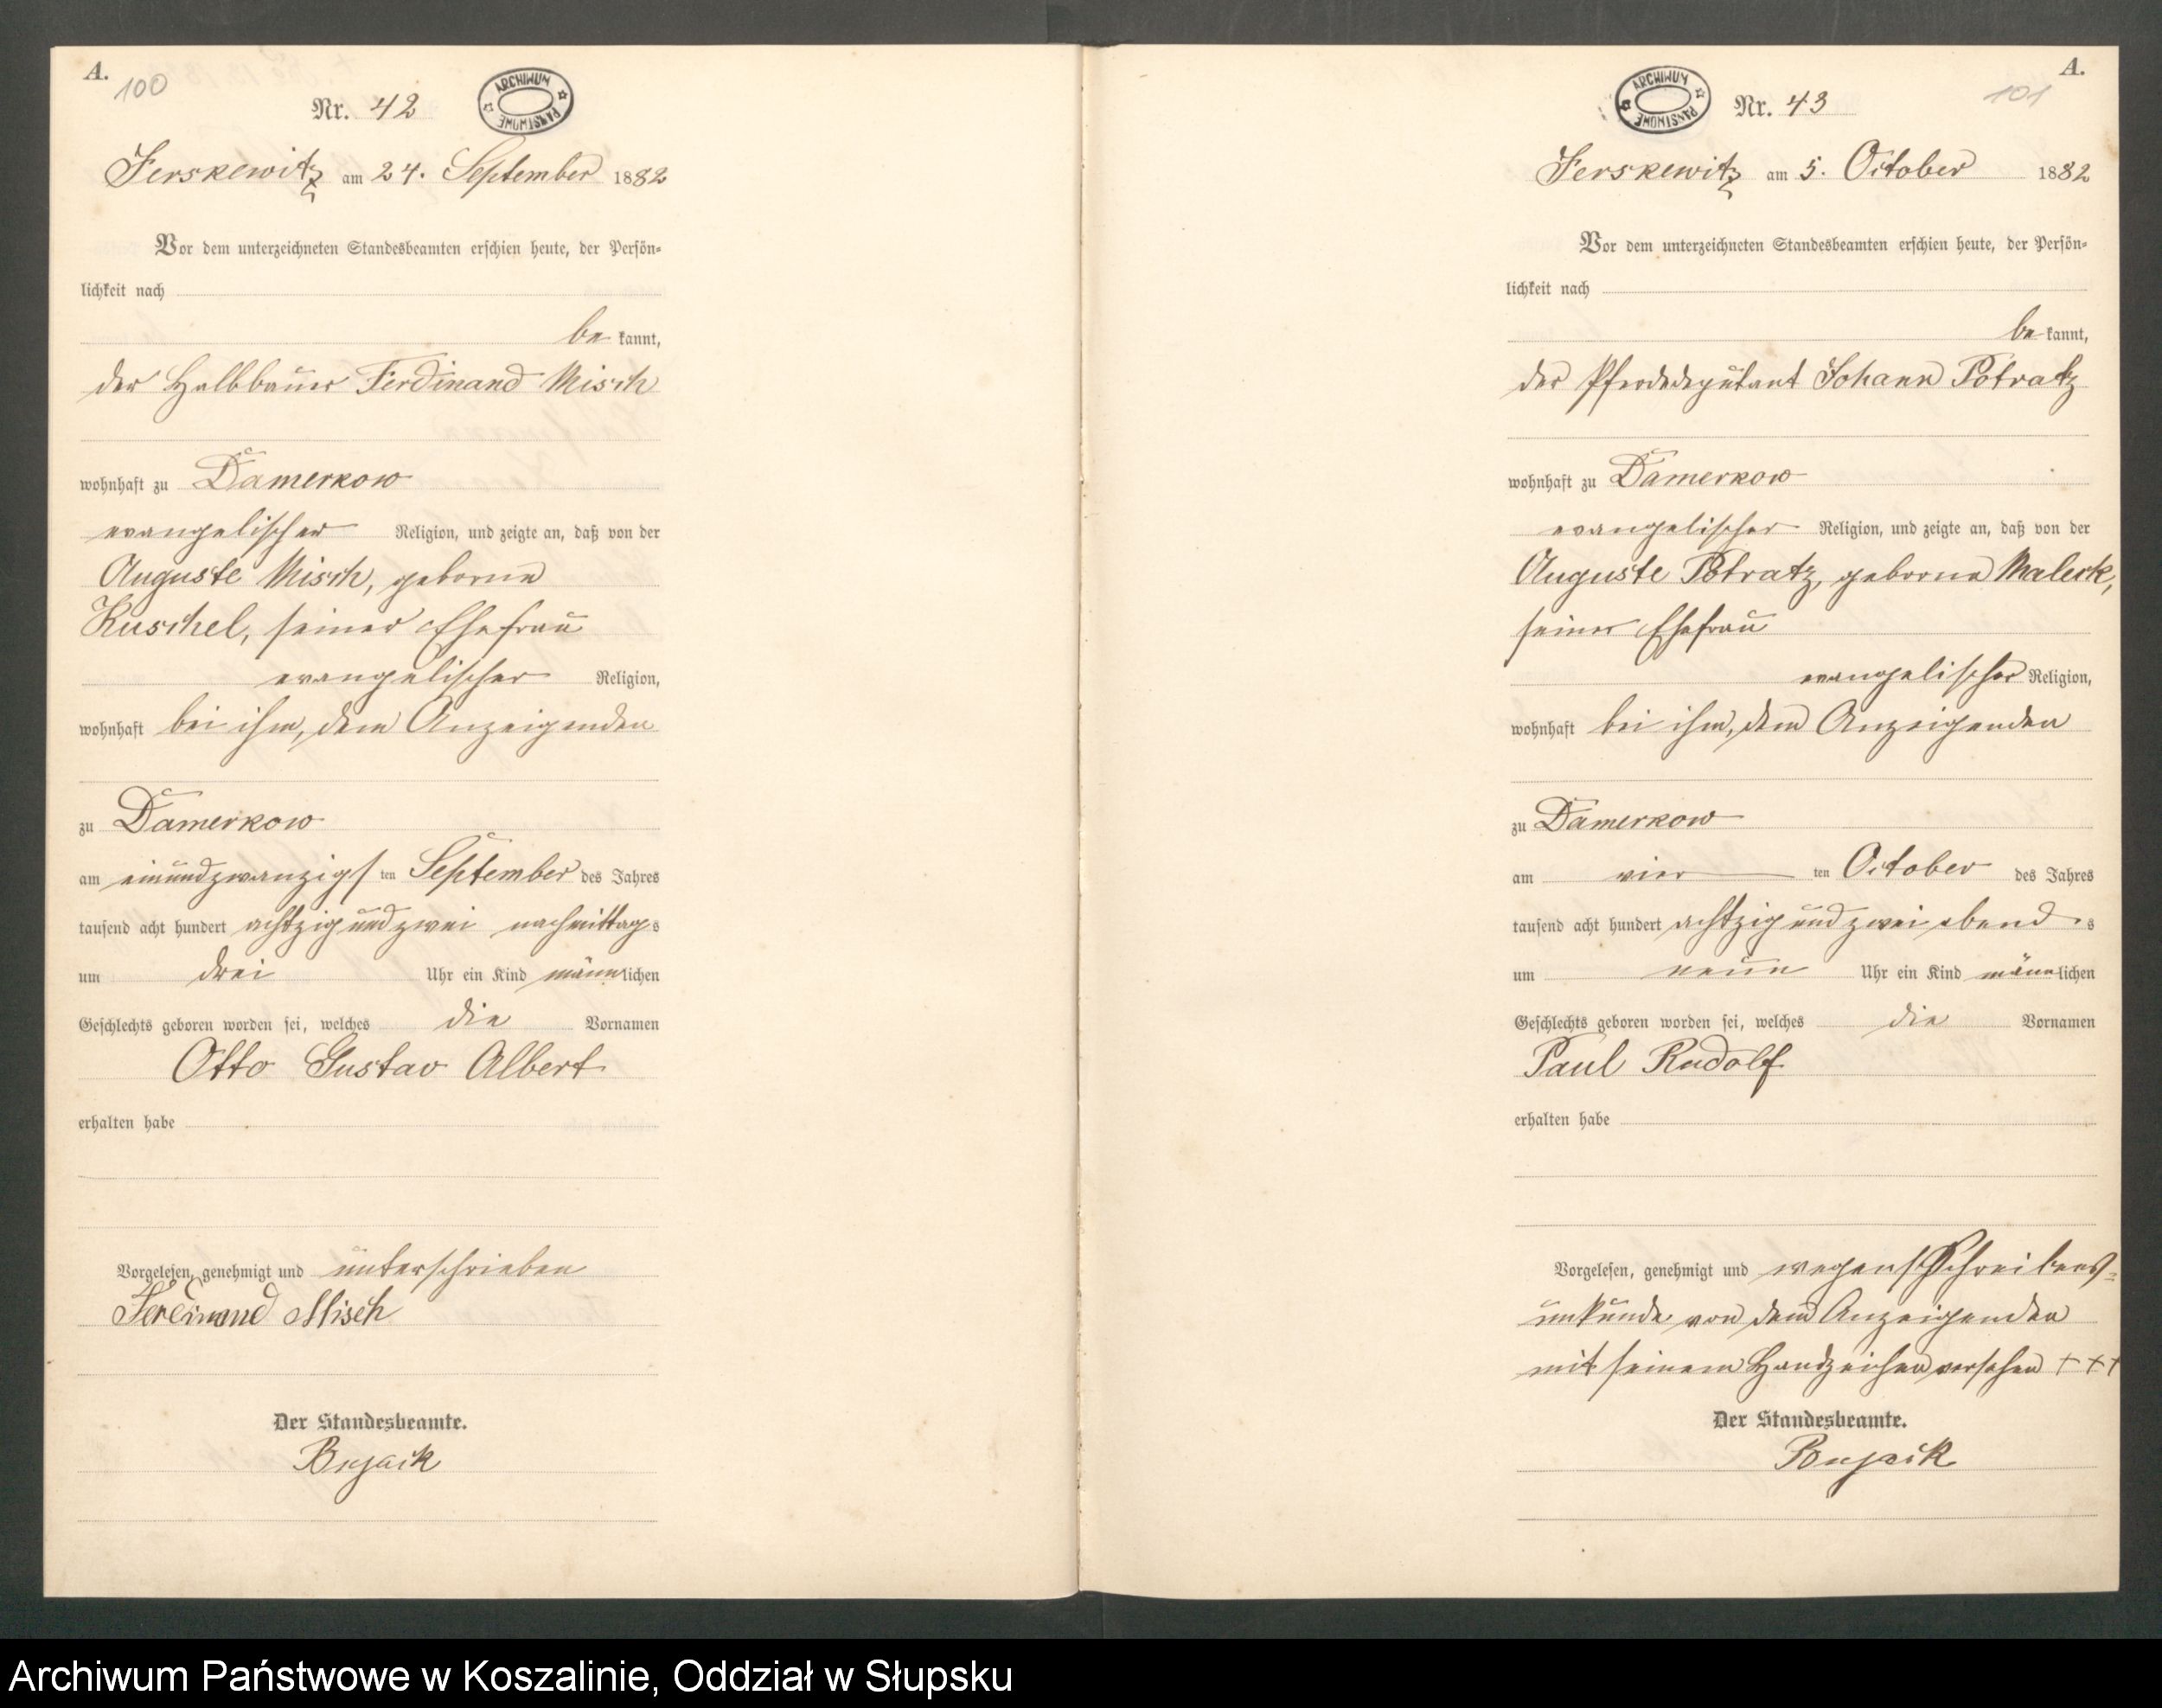 A.
100
Nr. 42
ARCHIWUM PAŃSTWOWE
Jerskewitz am 24. September 1882
Vor dem unterzeichneten Standesbeamten erschien heute, der Persön-
lichkeit nach
be kannt,
der Halbbauer Ferdinand Misch
wohnhaft zu Damerkow
evangelischer Religion, und zeigte an, daß von der
Auguste Misch, geborne
Kuschel, seiner Ehefrau
evangelischer Religion,
wohnhaft bei ihm, dem Anzeigenden
zu Damerkow
am einundzwanzigs ten September des Jahres
tausend acht hundert achtzig und zwei nachmittag s
um drei Uhr ein Kind männlichen
Geschlechts geboren worden sei, welches die Vornamen
Otto Gustav Albert
erhalten habe
Vorgelesen, genehmigt und unterschrieben
Ferdinand Misch
Der Standesbeamte.
A.
101
ARCHIWUM PAŃSTWOWE
Nr. 43
Jerskewitz am 5. October 1882
Vor dem unterzeichneten Standesbeamten erschien heute, der Persön-
lichkeit nach
be kannt,
der Pferdedeputant Johann Potratz
wohnhaft zu Damerkow
evangelischer Religion, und zeigte an, daß von der
Auguste Potratz, geborne Maleck,
seiner Ehefrau
evangelischer Religion,
wohnhaft bei ihm, dem Anzeigenden
zu Damerkow
am vier ten October des Jahres
tausend acht hundert achtzig und zwei abend s
um neun Uhr ein Kind männlichen
Geschlechts geboren worden sei, welches die Vornamen
Paul Rudolf
erhalten habe
Vorgelesen, genehmigt und wegen Schreibens-
unkunde von dem Anzeigenden
mit seinem Handzeichen versehen + + +
Der Standesbeamte.
Archiwum Państwowe w Koszalinie, Oddział w Słupsku